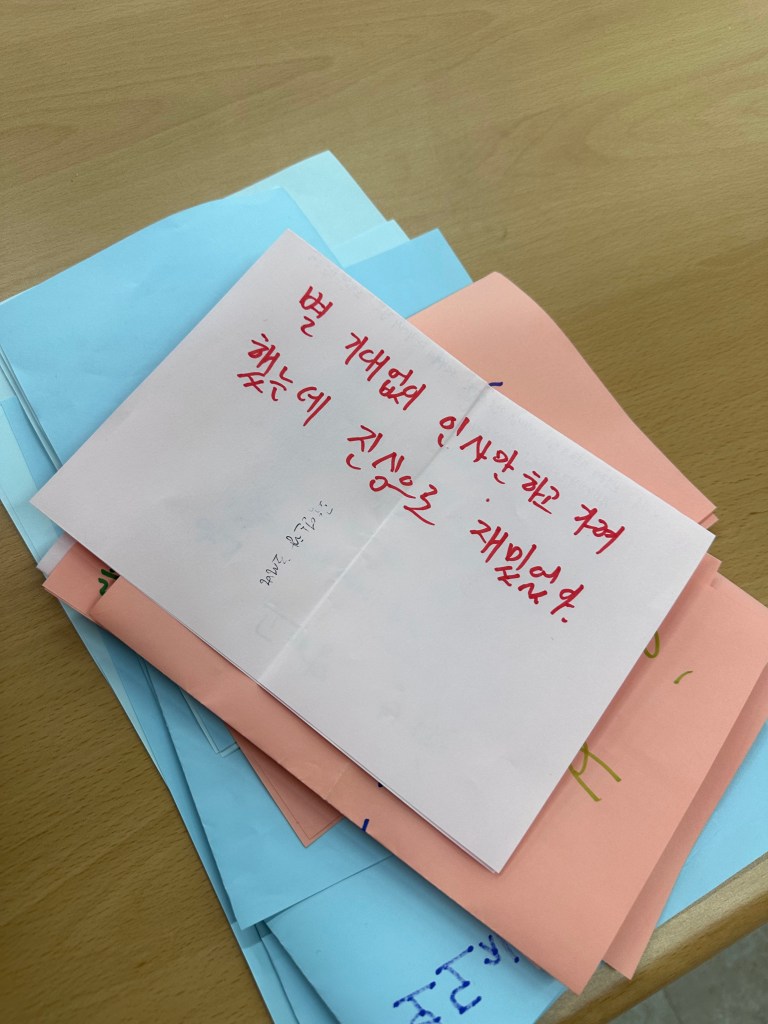 별 기대없이 인사만 하고 가려
했는데 진심으로 재밌었다.